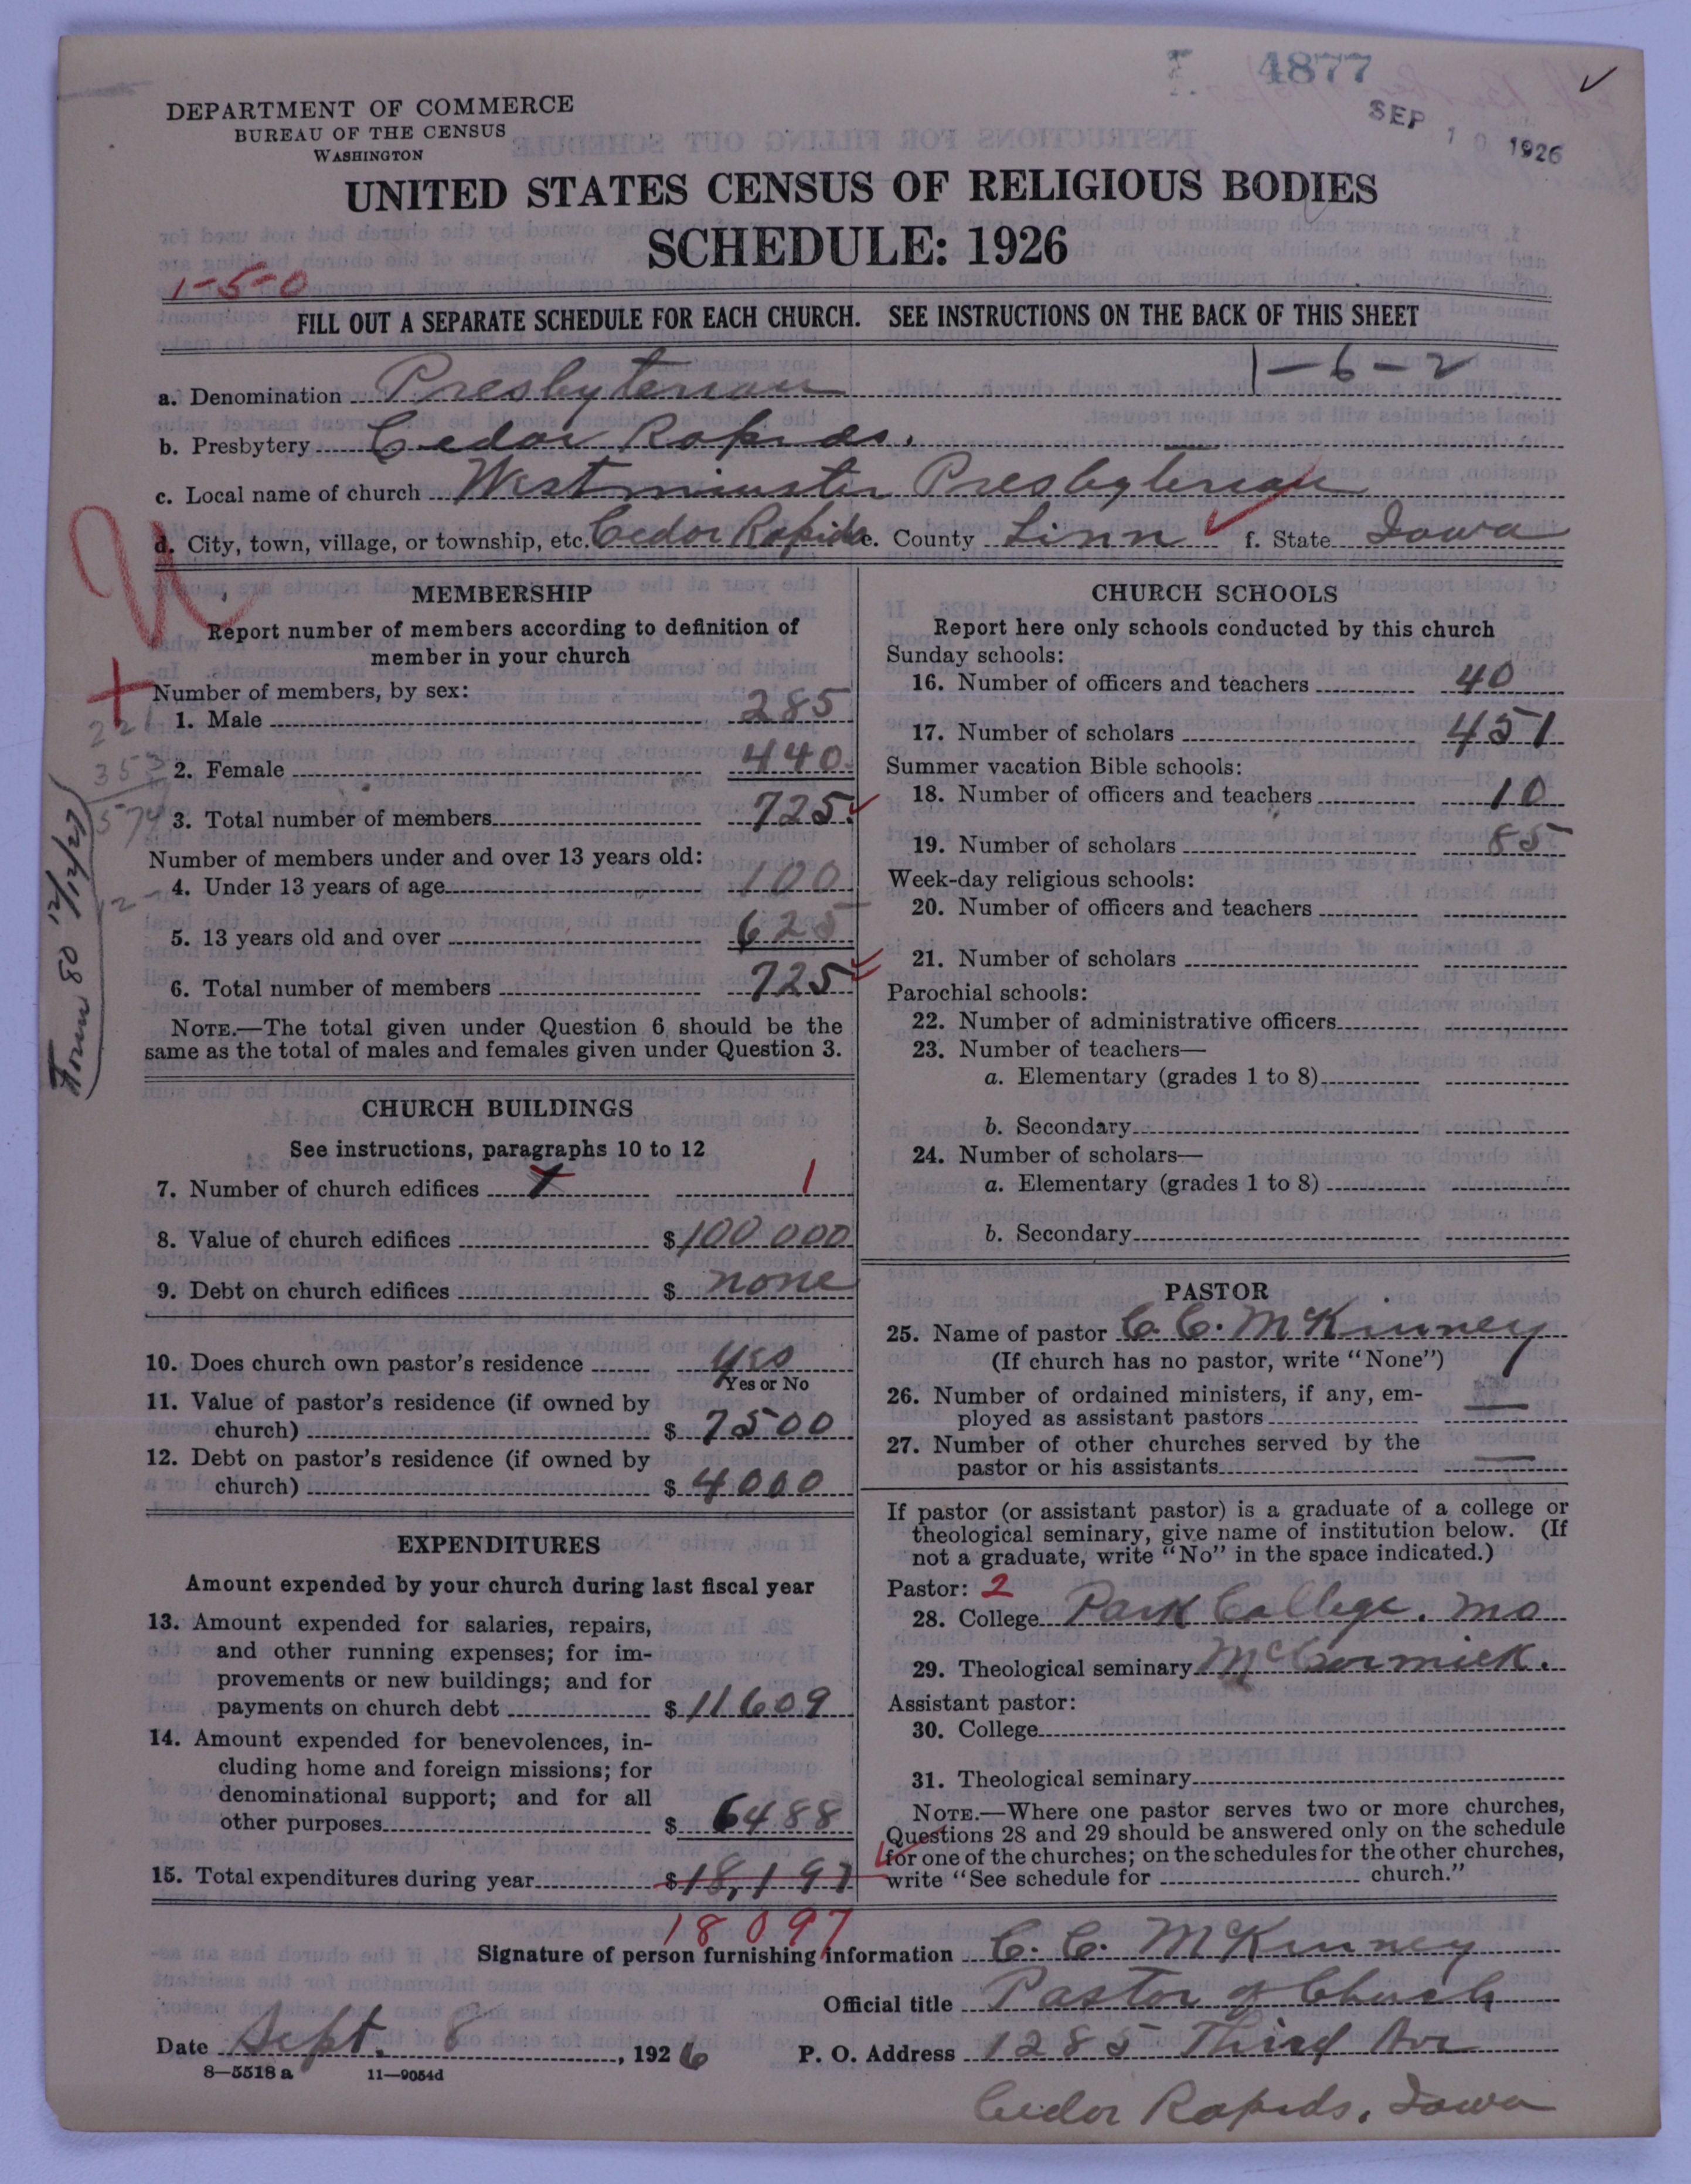 4877
SEP 10 1926
DEPARTMENT OF COMMERCE
BUREAU OF THE CENSUS
WASHINGTON
UNITED STATES CENSUS OF RELIGIOUS BODIES
SCHEDULE: 1926
1-5-0
FILL OUT A SEPARATE SCHEDULE FOR EACH CHURCH. SEE INSTRUCTIONS ON THE BACK OF THIS SHEET
1-6-2
a. Denomination Presbyterian
b. Presbytery Cedar Rapids.
c. Local name of church Westminster Presbyterian
d. City, town, village, or township, etc. Cedar Rapids e. County Linn f. State Iowa
MEMBERSHIP
Report number of members according to definition of
member in your church
Number of members, by sex:
1. Male 285
2. Female 440
3. Total number of members 725
Number of members under and over 13 years old:
4. Under 13 years of age 100
5. 13 years old and over 625
6. Total number of members 725
NOTE.—The total given under Question 6 should be the
same as the total of males and females given under Question 3.
Form 80 12/12/27
CHURCH BUILDINGS
See instructions, paragraphs 10 to 12
7. Number of church edifices 1 1
8. Value of church edifices $100 000
9. Debt on church edifices $ none
10. Does church own pastor's residence yes
Yes or No
11. Value of pastor's residence (if owned by
church) $ 7500
12. Debt on pastor's residence (if owned by
church) $ 4000
EXPENDITURES
Amount expended by your church during last fiscal year
13. Amount expended for salaries, repairs,
and other running expenses; for im-
provements or new buildings; and for
payments on church debt $ 11609
14. Amount expended for benevolences, in-
cluding home and foreign missions; for
denominational support; and for all
other purposes $ 6488
15. Total expenditures during year $18,197
18097
CHURCH SCHOOLS
Report here only schools conducted by this church
Sunday schools:
16. Number of officers and teachers 40
17. Number of scholars 451
Summer vacation Bible schools:
18. Number of officers and teachers 10
19. Number of scholars 85
Week-day religious schools:
20. Number of officers and teachers
21. Number of scholars
Parochial schools:
22. Number of administrative officers
23. Number of teachers—
a. Elementary (grades 1 to 8)
b. Secondary
24. Number of scholars—
a. Elementary (grades 1 to 8)
b. Secondary
PASTOR
25. Name of pastor C. C. McKinney
(If church has no pastor, write "None")
26. Number of ordained ministers, if any, em-
ployed as assistant pastors —
27. Number of other churches served by the
pastor or his assistants —
If pastor (or assistant pastor) is a graduate of a college or
theological seminary, give name of institution below. (If
not a graduate, write "No" in the space indicated.)
Pastor: 2
28. College Park College, Mo
29. Theological seminary McCormick.
Assistant pastor:
30. College
31. Theological seminary
NOTE.—Where one pastor serves two or more churches,
Questions 28 and 29 should be answered only on the schedule
for one of the churches; on the schedules for the other churches,
write "See schedule for church."
Signature of person furnishing information C. C. McKinney
Official title Pastor of Church
Date Sept. 8, 1926 P. O. Address 1285 Third Ave
8—5518 a 11—9054d
Cedar Rapids, Iowa